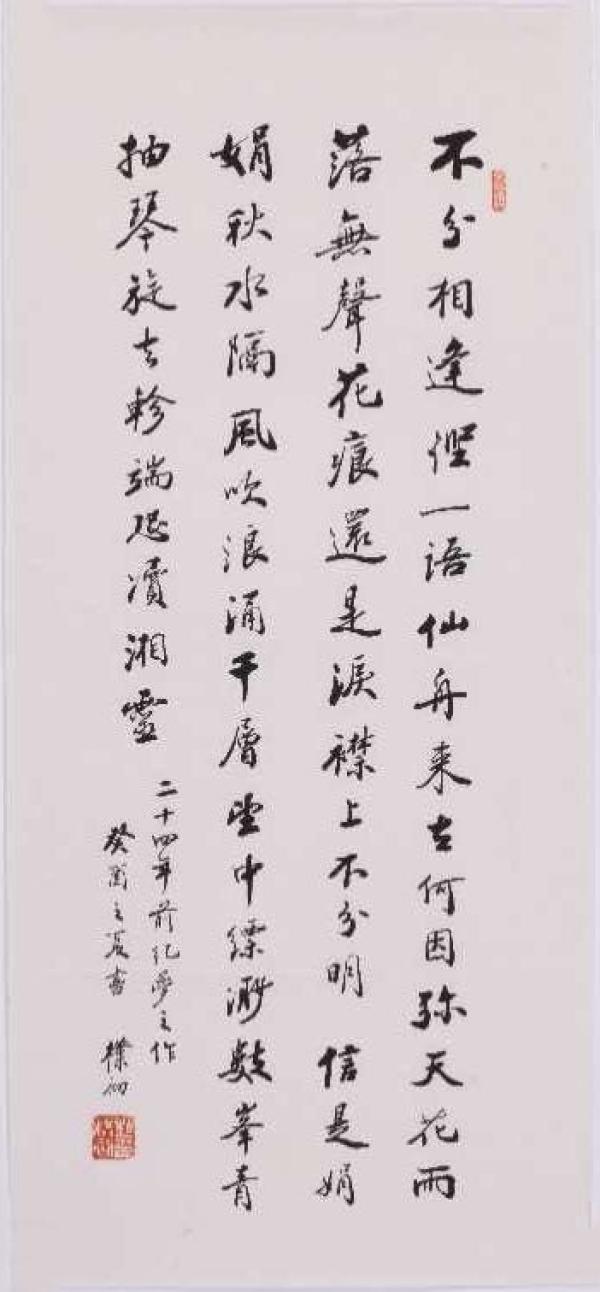 不分相逢慳一語仙舟来去何因弥天花雨
落無聲花痕還是淚襟上不分明 信是娟
娟秋水隔風吹浪涌千層望中縹渺數峯青
抽琴旋去軫端恐瀆湘靈
二十四年前紀夢之作
癸酉之夏書 樸初